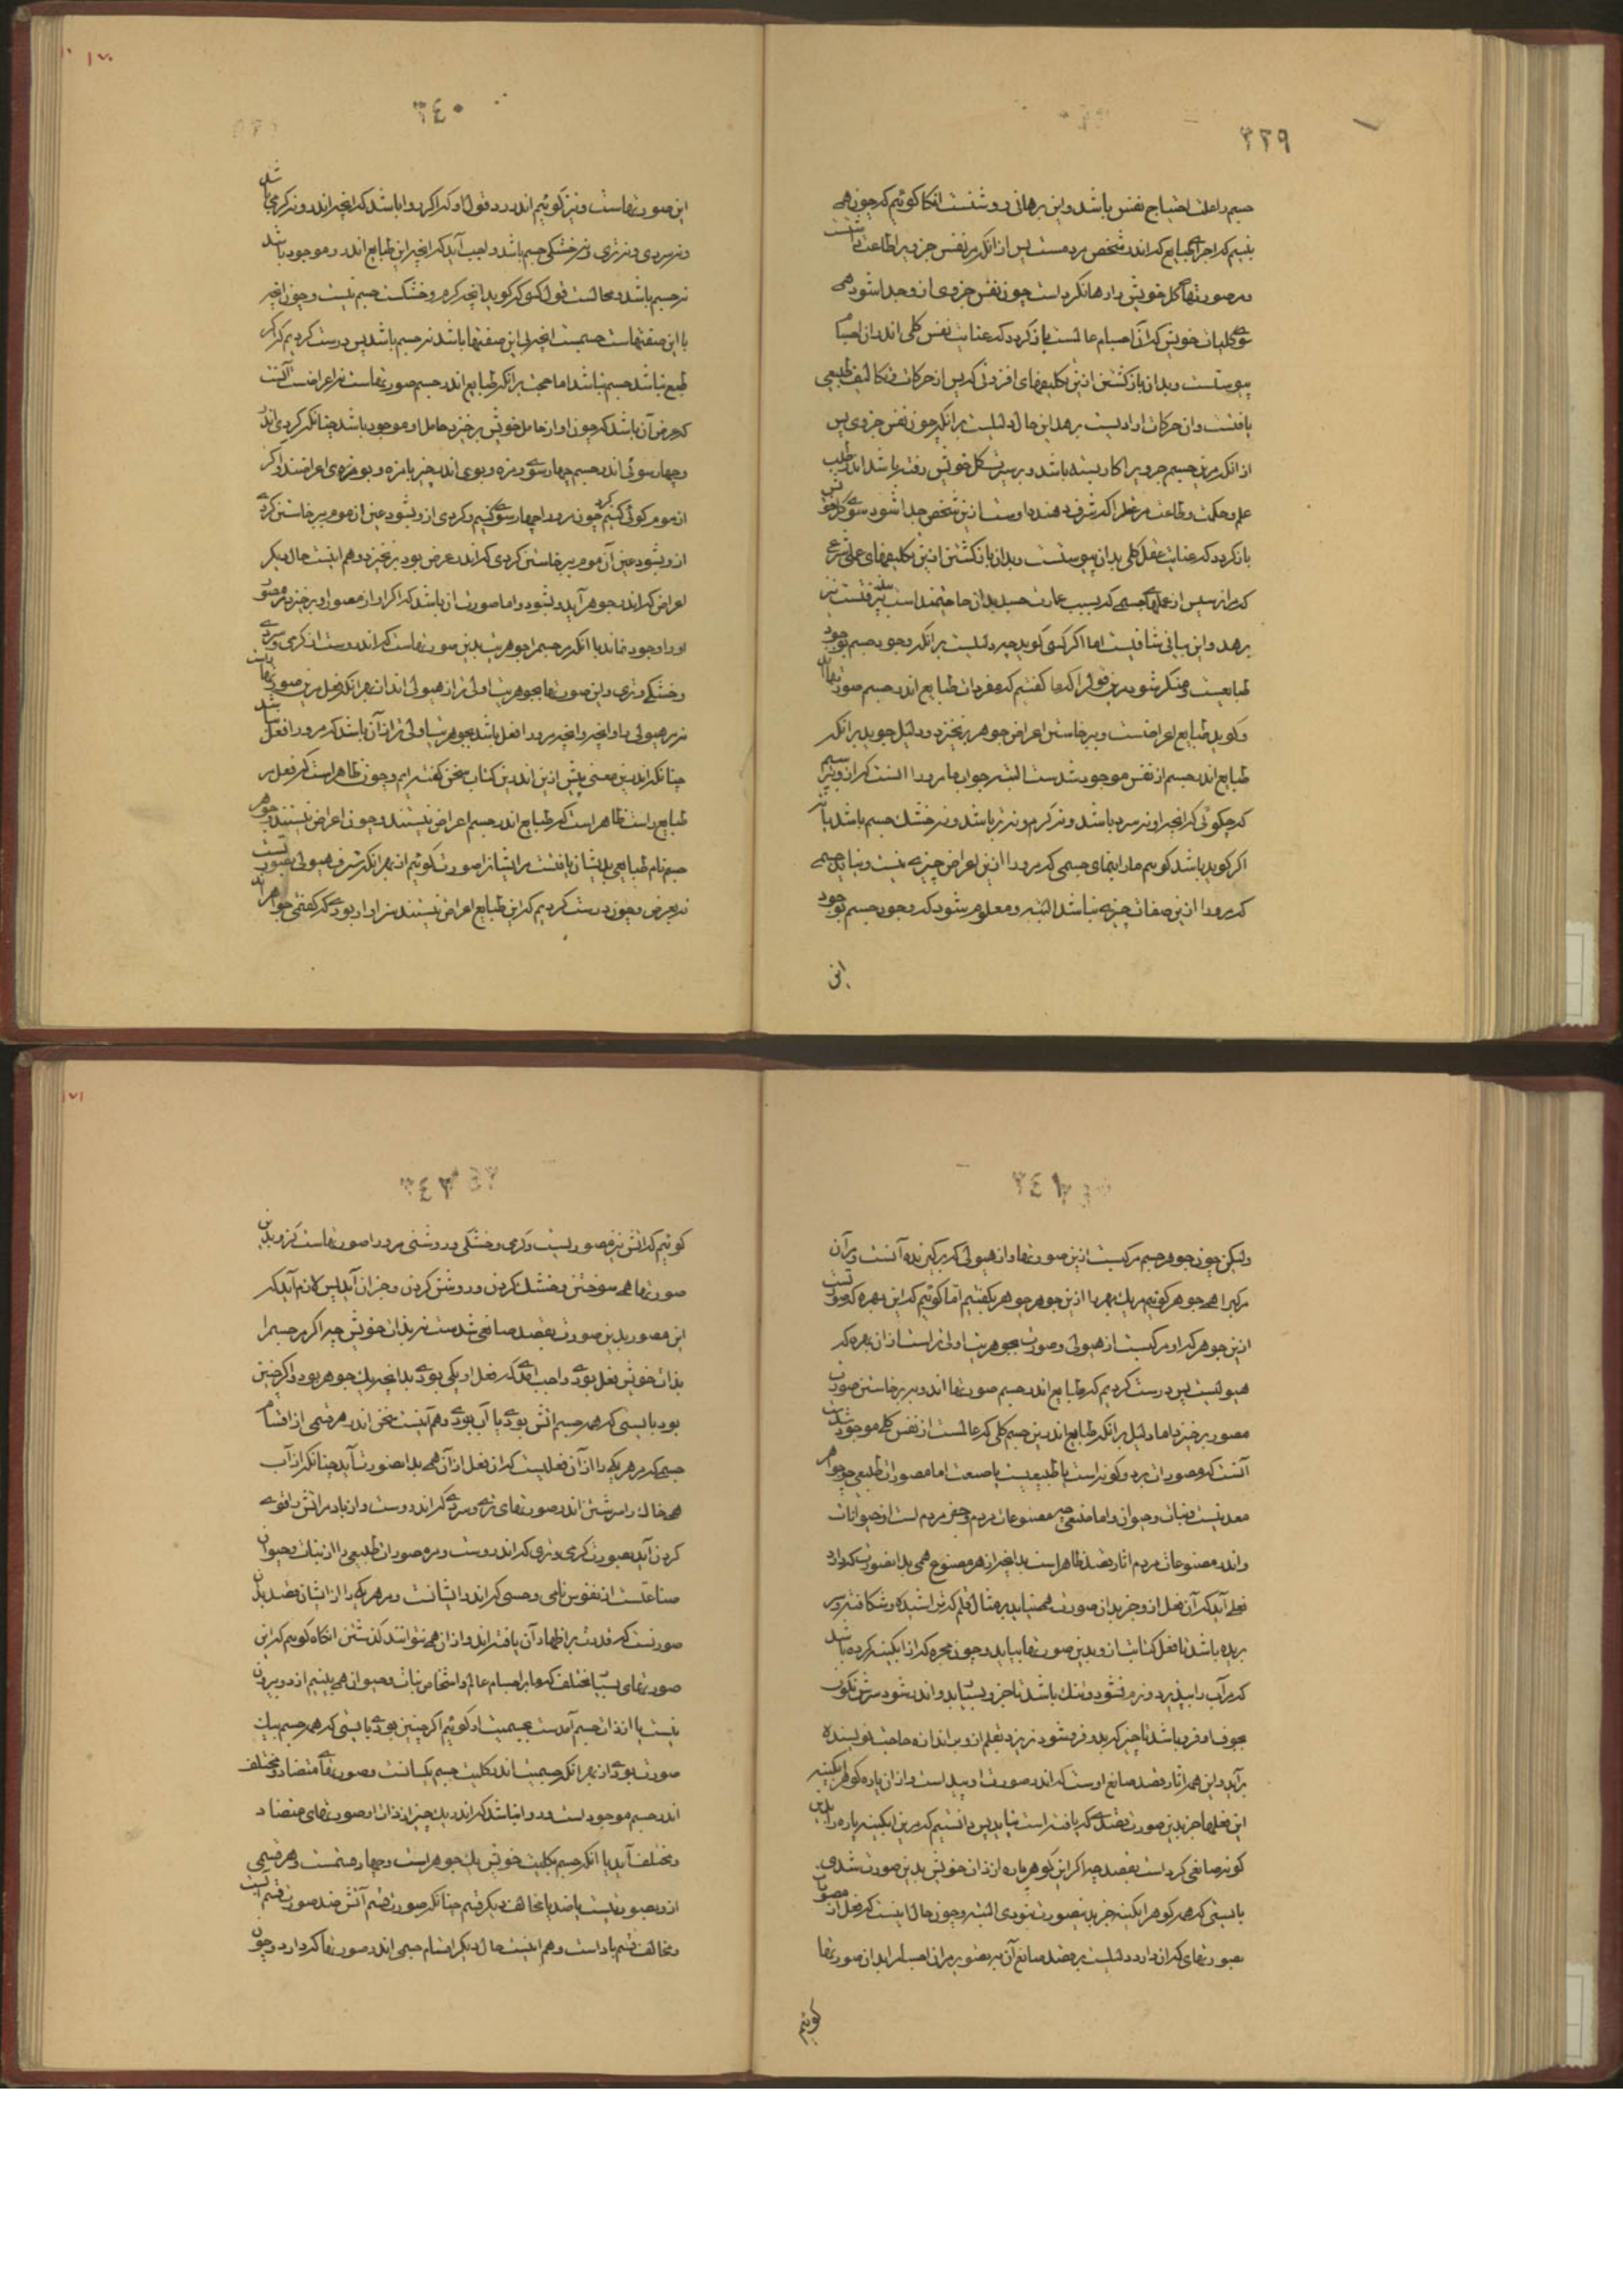 ٣٣٩
جسم را علت احتیاج نفس باشد و این برهانی روشنست آنکا کوئیم که چون همی
بینیم که اجزای طبایع که اندر شخص مردمست پس از آنکه مر نفس جزوی را طاعت داشتست
و مر صورتهای کل خویش را رها کردست چون نفس جزوی ازو جدا شود همی
سوی کلیات خویش که آن اجسام عالمست باز کردد که عنایت نفس کلی اندران اجسام
پیوستست و بدان باز کشتن ازین تکلیفهای افزونی که پس از حرکات و تکالیف طبیعی
یافتست و آن حرکات ارادیست برهد این حال دلیلست بر آنکه چون نفس جزوی پس
از آنکه مرین جسم جزوی را کار بسته باشد و بر سیرت کل خویش رفته باشد اندر طلب
علم و حکمت و طاعت مر عقل را که شرف دهنده اوست ازین شخص جدا شود سوی کل خویش
باز کردد که عنایت عقل کلی بدان پیوستست و بدان باز کشتن ازین تکلیفهای عملی شرعی
که
برهد و این بیانی شافیست اما اکر کسی کوید چه دلیلست بر آنکه وجود جسم بوجود
طبایعست و منکر شود مرین قول را که ما کفتیم که مفردات طبایع اندر جسم صورتهااند
و کوید طبایع اعراضست و برخاستن اعراض جوهر برنخیزد و دلیل جوید بر آنکه
طبایع اندر جسم از نفس موجود شدست البته جواب ما مرو را آنست که ازو بپرسیم
که چکوئی که آنچه او نه سرد باشد و نه کرم و نه تر باشد و نه خشک جسم باشد یا نه
اکر کوید باشد کوییم ما را بنمای جسمی که مرو را ازین اعراض چیزی نیست و نیابد جسمی
که مرو را ازین صفات چیزی نباشد البته و معلوم شود که وجود جسم بوجود
این
٣٤٠
این صورتهاست و نیز کوئیم اندر رد قول او که اکر روا باشد که آنچه اندرو نه کرمی باشد
و نه سردی و نه تری و نه خشکی جسم باشد واجب آید که آنچه این طبایع اندرو موجود باشد
نه جسم باشد و محالست قول کسی که کوید آنچه کرم و خشکست جسم نیست و چون آنچه
با این صفتهاست جسمست آنچه بی این صفتها باشد نه جسم باشد پس درست کردیم که اکر
طبع نباشد جسم نباشد اما حجت بر آنکه طبایع اندر جسم صورتهاست نه اعراضست آنست
که عرض آن باشد که چون او از حامل خویش برخیزد حامل او موجود باشد چنانکه کردی اندر
و چهارسوئی اندر جسم چهارسوی و مزه و بوی اندر چیز با مزه و بو مزه‌ی اعراضند و اکر
از موم کوئی کنیم کرد چون مرو را چهارسوی کنیم و کردی ازو بشود عین از موم برخاستن کردی
ازو بشود عین آن موم برخاستن کردی که اندرو عرض بود برنخیزد و هم اینست حال دیکر
اعراض که اندر جوهر آید و بشود و اما صورت آن باشد که اکر او از مصور او برخیزد مر مصور
او را وجود نماند با آنکه مر جسم را جوهریت بدین صورتهاست که اندروست از کرمی و سردی
و خشکی و تری و این صورتها بجوهریت اولی‌تر از هیولی‌اند از بهر آنکه فعل مرین صورتهاراست
نه مر هیولی را و آنچه مرو را فعل باشد بجوهریت اولی‌تر از آن باشد که مرو را فعل نباشد
چنانکه اندرین معنی پیش ازین اندرین کتاب سخن کفته‌ایم و چون ظاهر است که فعل مر
طبایع راست ظاهر است که طبایع اندر جسم اعراض نیستند و چون اعراض نیستند و جوهر
جسم نام طبایعی بدیشان یافتست مر ایشان را صورت کوئیم از بهر آنکه شرف هیولی بصورتست
نه بعرض و چون درست کردیم که این طبایع اعراض نیستند سزاوار بودی که کفتمی جواهراند
٣٤١
ولیکن چون جوهر جسم مرکبست ازین صورتها و از هیولی که برکیرنده آنست و مر آن
مرکب را همی جوهر کوئیم مر یک بهر را ازین جوهر جوهر نکفتیم اما کوئیم که این بهره که صورتست
ازین جوهر که او مرکبست از هیولی و صورت بجوهریت اولی‌تر است از آن بهره که
هیولیست پس درست کردیم که طبایع اندر جسم صورتهااند و به برخاستن صورت
مصور برخیزد اما دلیل بر آنکه طبایع اندرین جسم کلی که عالمست از نفس کلی موجود شدست
آنست که مصورات بر دو کونه است یا طبیعیست یا صنعت اما مصورات طبیعی چو جواهر
معدنیست و نبات و حیوان و اما صنعی چو مصنوعات مردم و جز مردم است از حیوانات
و اندر مصنوعات مردم آثار قصد ظاهر است بدانچه از هر مصنوع همی بدان صورت که دارد
فعلی آید که آن فعل ازو جز بدان صورت همی نیاید بر مثال قلم که تراشیده و شکافته و سر
بریده باشد تا فعل کتابت ازو بدین صورتها بیاید و چون محبره که از آبکینه کرده باشد
که مر آب را بپذیرد و نرم نشود و تنک باشد تا
مجوف و فرو باشد تا چیز که برو فرو شود نریزد و بقلم از و بر اندازه حاجت نویسنده
برآید و این همه آثار قصد صانع اوست که اندر صورت او پیداست و از آن پاره کوهر آبکینه
این فعلها جز بدین صورت قصدی که یافته است نیاید پس دانستیم که مرین آبکینه پاره را بدین
کونه صانعی کردست بقصد چه اکر این کوهر پاره از ذات خویش بدین صورت شدی
بایستی که همه کوهر آبکینه جز بدین صورت نبودی البته و چون حال اینست که فعل از مصورات
بصورتهای که آن دارد دلیلست بر قصد صانع آن به تصویر مر آن اجسام را بدان صورتها
کوئیم
٣٤٢
کوئیم که آتش نیز مصوریست و کرمی و خشکی و روشنی مرو را صورتهاست کزو بدین
صورتها همی سوختن و خشک کردن و روشن کردن و جز آن آید پس لازم آید که
این مصور بدین صورت بقصد صانعی شدست نه بذات خویش چه اکر مر جسم را
بذات خویش فعل بودی واجب آمدی که فعل او یکی بودی بدانچه یک جوهر بود و اکر چنین
بود بایستی که همه جسم آتش بودی یا آب بودی و هم اینست سخن اندر هر قسمی از اقسام
جسم که مر هر یکی را از آن فعلیست که آن فعل از آن همی بدان صورت آید چنانکه از آب
همی خاک را سرشتن اندر صورتهای تری و سردی که اندروست و از باد مر آتش را قوی
کردن آید بصورت کرمی و تری که اندروست و مر مصورات طبیعی را از نبات و حیوان
صناعتست از نفوس نامی و حسی که اندر ایشانست و مر هر یکی را از ایشان قصد بدان
صورتست که قدرت بر اظهار آن یافته‌اند و از آن همی نتوانند کذشتن آنکاه کوییم که این
صورتهای بسیار مختلف که مر اجسام عالم و اشخاص نبات و حیوان همی بینیم از دو بیرون
نیست یا از ذات جسم آمدست بجسمیت او کوئیم اکر چنین بودی بایستی که همه جسم بیک
صورت بودی از بهر آنکه جسمیت اندر کلیت جسم یکسانست و صورتهای متضاد و مختلف
اندر جسم موجود است و روا نباشد که اندر یک چیز از ذات او صورتهای متضاد
و مختلف آید با آنکه جسم بکلیت خویش یک جوهر است و چهار قسمست و هر قسمی
ازو بصورتیست یا ضد یا مخالف دیکر قسم چنانکه صورت قسم آتش ضد صورت قسم آبست
و مخالف قسم باد است و هم اینست حال دیکر اقسام جسم اندر صورتها که دارد و چون